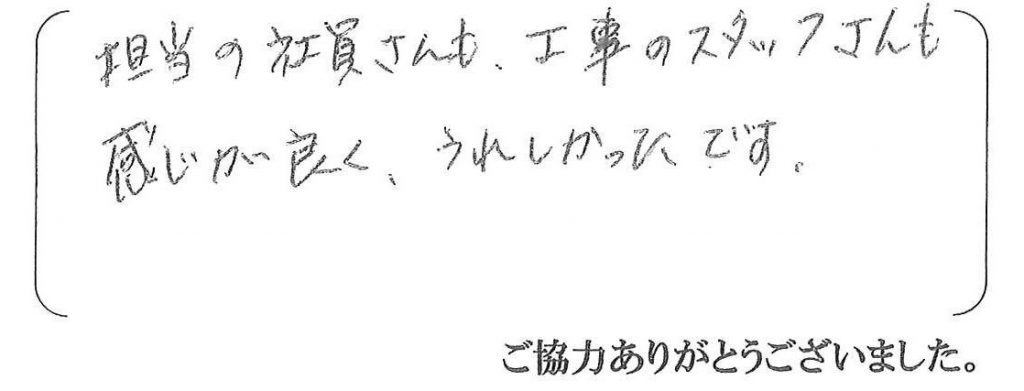 担当の社員さんも、工事のスタッフさんも
感じが良く、うれしかったです。
ご協力ありがとうございました。